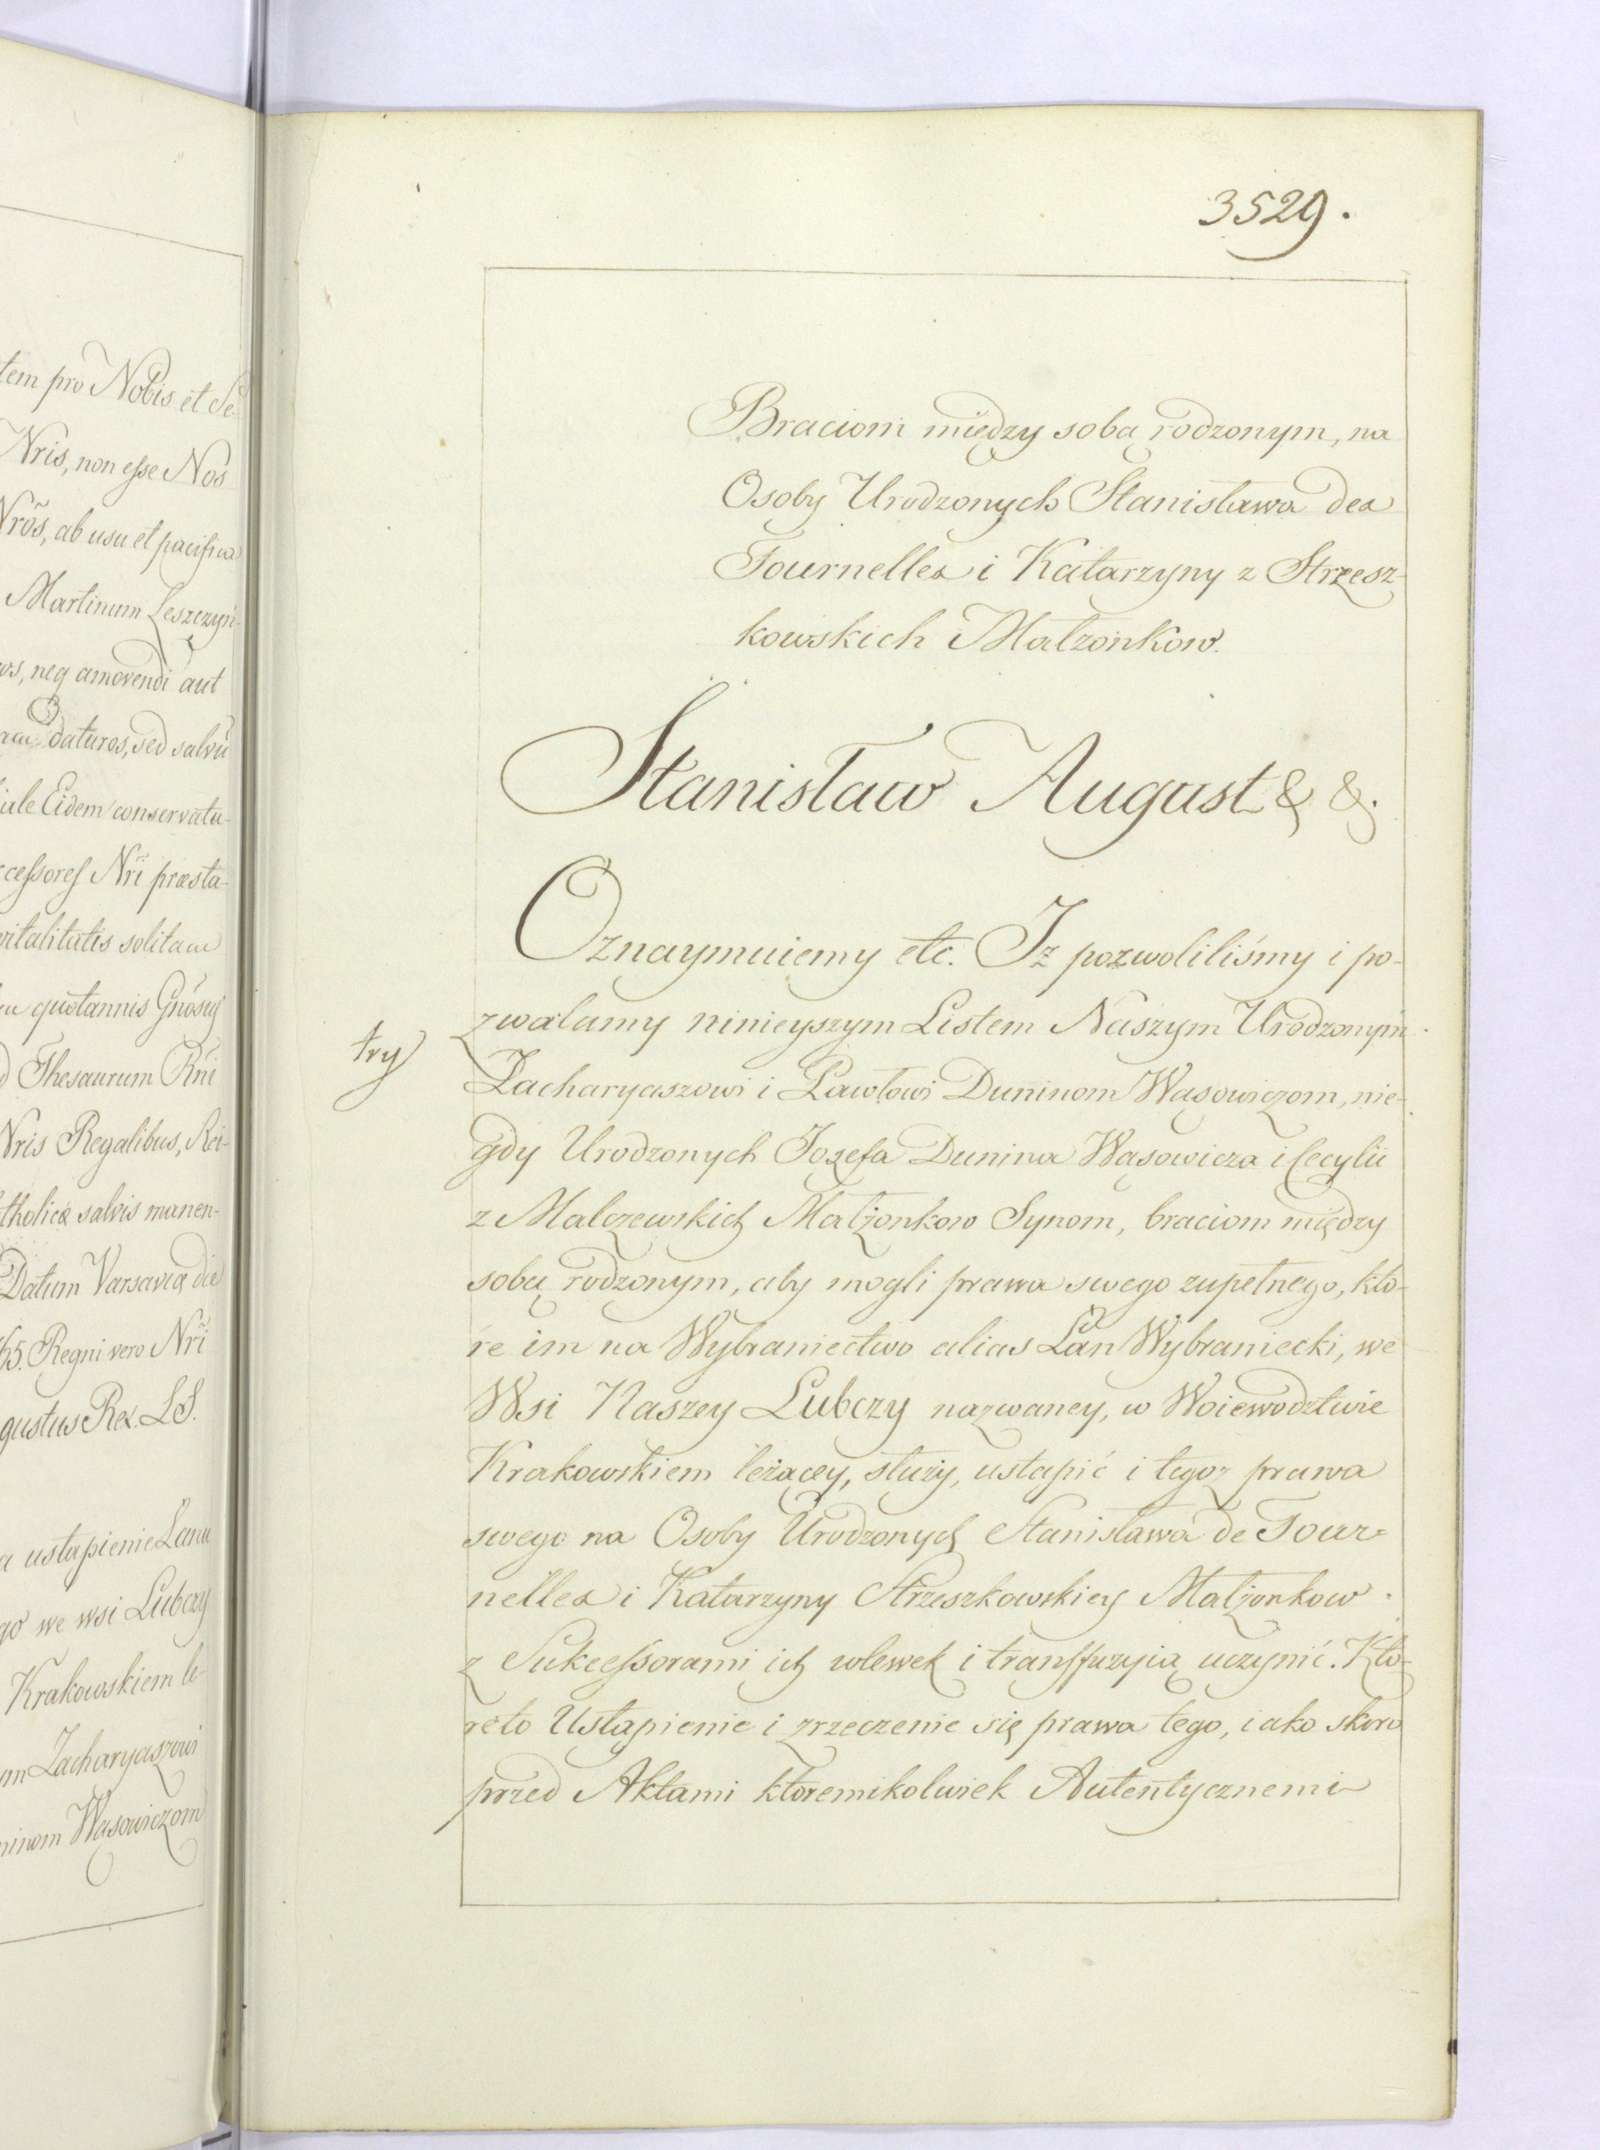 tem pro Nobis et Se-
Nris, non esse Nos
Nrõs, ab usu et pacifica
Martinum Leszczyń-
neq amovendi aut
daturos, sed salvũ
Eidem conservatu-
ccessores Nri præsta-
solitam
quotannis
Thesaurum Rni
Nris Regalibus, Rei-
tholicæ salvis manen-
Datum Varsaviæ die
65. Regni vero Nri
gustus Rex. LS.
ustąpienie Łanu
go we wsi Lubczy
Krakowskiem le-
Zacharyaszowi
ninom Wąsowiczom
3529.
Braciom między sobą rodzonym, na
Osoby Urodzonych Stanisława des
Tournelles i Katarzyny z Strzesz-
kowskich Małżonkow.
Stanisław August & &.
Oznaymuiemy etc. Iż pozwoliliśmy i po-
zwalamy ninieyszym Listem Naszym Urodzonym
try
Zacharyaszowi i Pawłowi Duninom Wąsowiczom, nie-
gdy Urodzonych Jozefa Dunina Wąsowicza i Cecylii
z Malczewskich Małżonkow Synom, braciom między
sobą rodzonym, aby mogli prawa swego zupełnego, kto-
re im na Wybraniectwo alias Łan Wybraniecki, we
Wsi Naszey Lubczy nazwaney, w Woiewodztwie
Krakowskiem leżącey, służy, ustąpić i tegoż prawa
swego na Osoby Urodzonych Stanisława de Tour-
nelles i Katarzyny Strzeszkowskiey Małżonkow
z Sukcessorami ich wlewek i transfuzyią uczynić. Kto-
reto Ustąpienie i zrzeczenie się prawa tego, iako skoro
przed Aktami ktoremikolwiek Autentycznemi